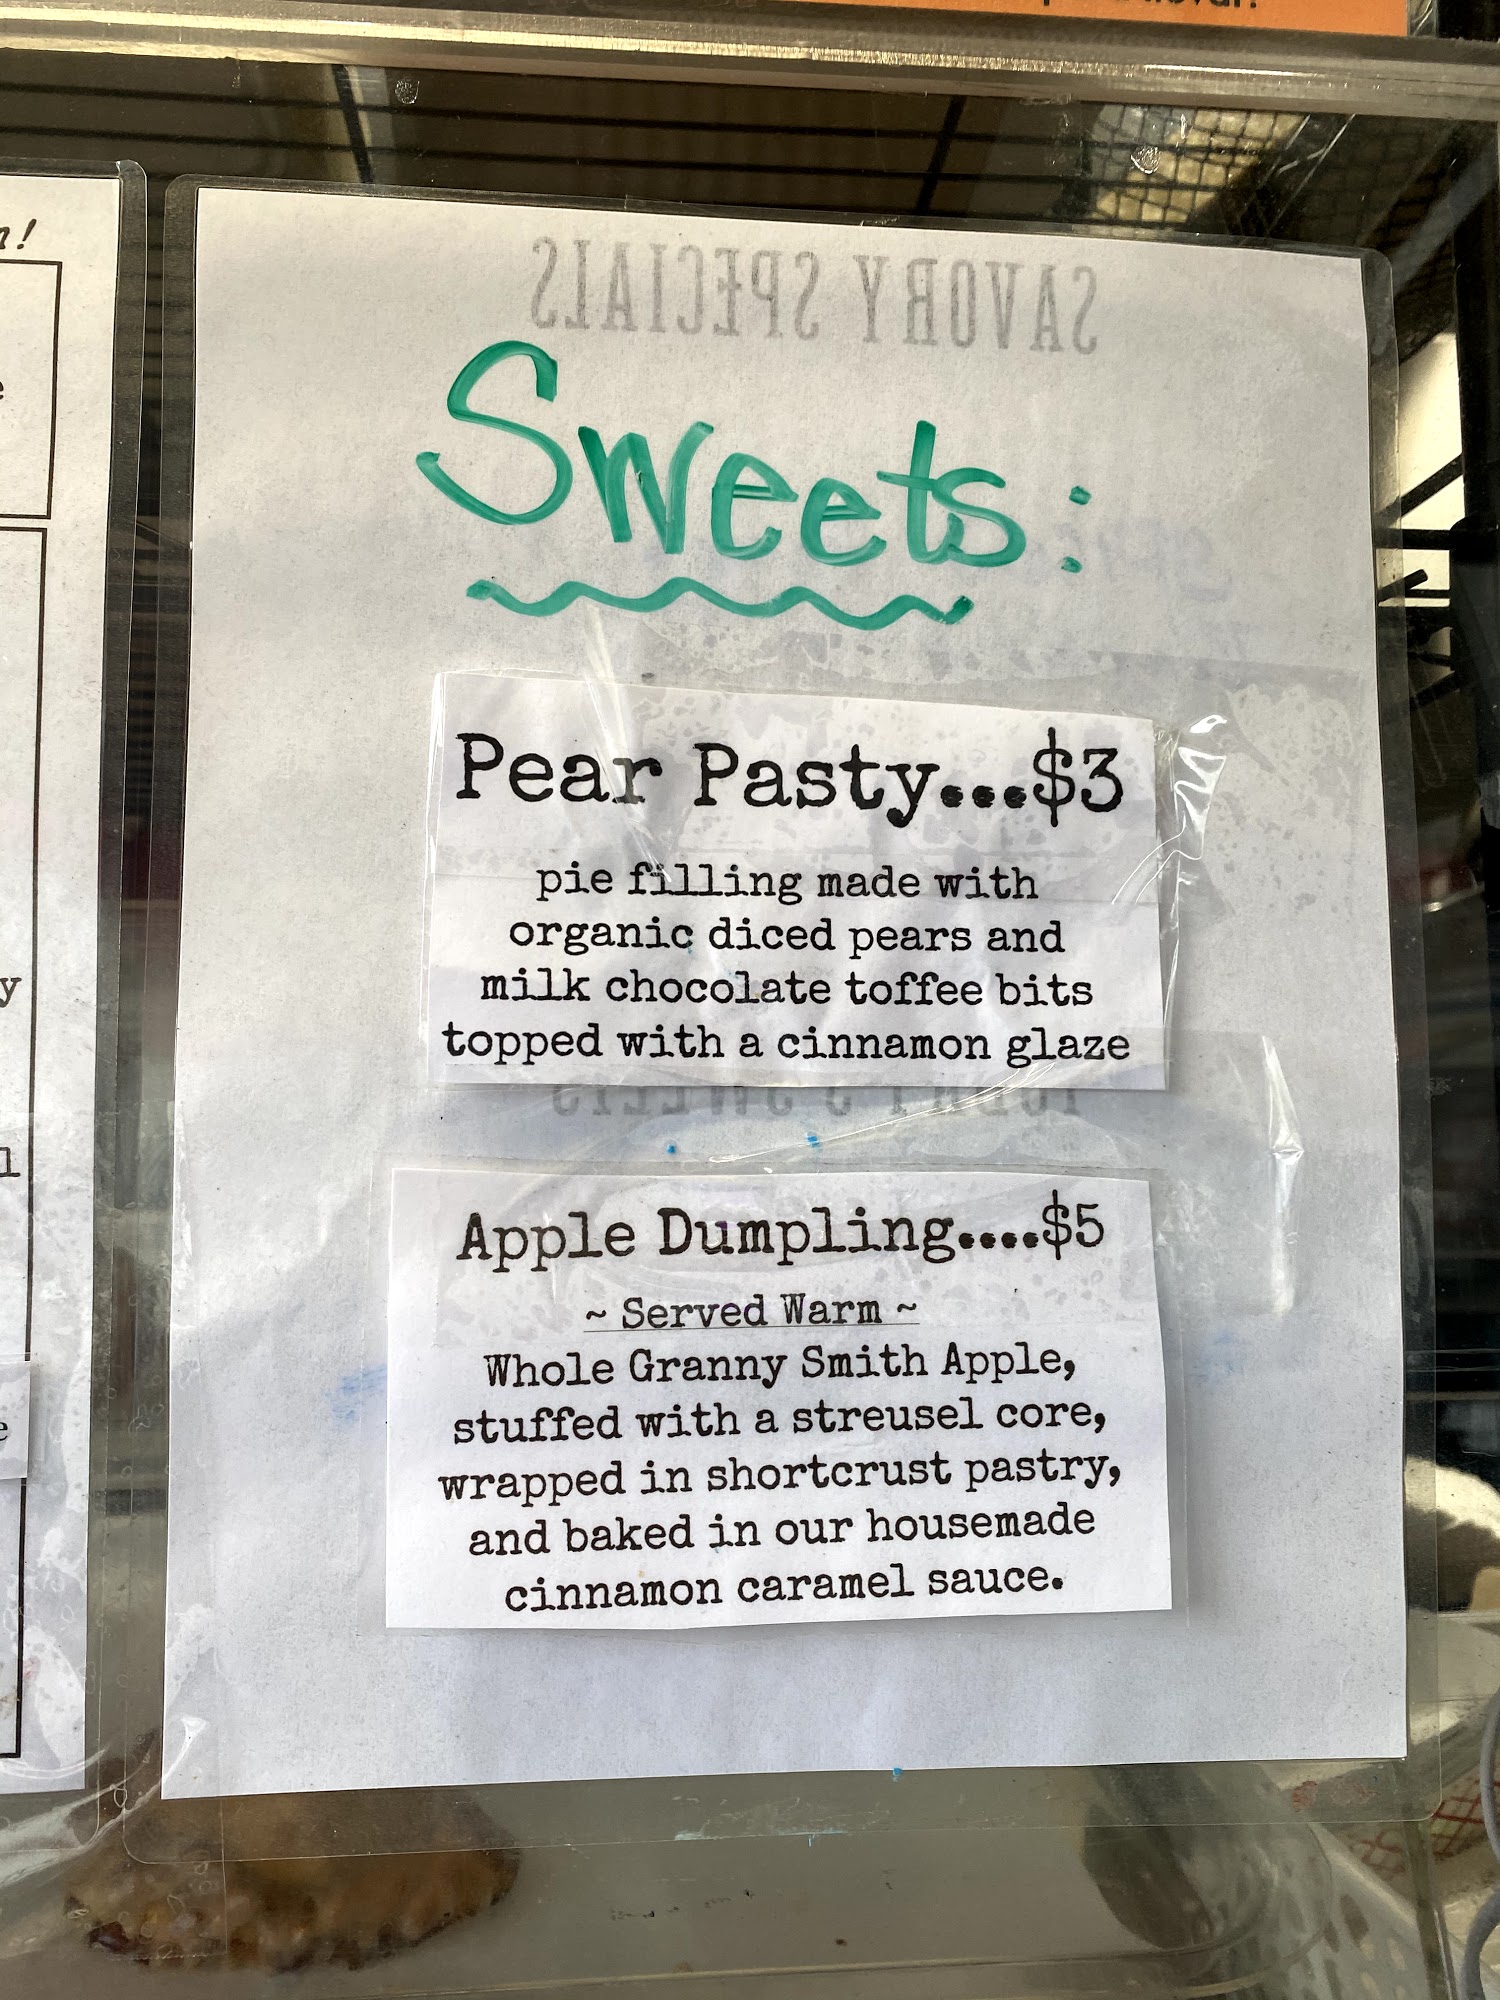 SAVORY SPECIALS
Sweets:
Pear Pasty...$3
pie filling made with
organic diced pears and
milk chocolate toffee bits
topped with a cinnamon glaze
TODAY'S SWEETS
Apple Dumpling....$5
~ Served Warm ~
Whole Granny Smith Apple,
stuffed with a streusel core,
wrapped in shortcrust pastry,
and baked in our housemade
cinnamon caramel sauce.